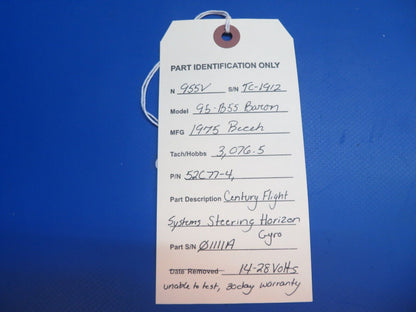 PART IDENTIFICATION ONLY
N 955V S/N TC-1912
Model 95-B55 Baron
MFG 1975 Beech
Tach/Hobbs 3,076.5
P/N 52C77-4,
Part Description Century Flight
Systems Steering Horizon
Gyro
Part S/N Ø1111A
Date Removed 14-28 Volts
unable to test, 30day warranty